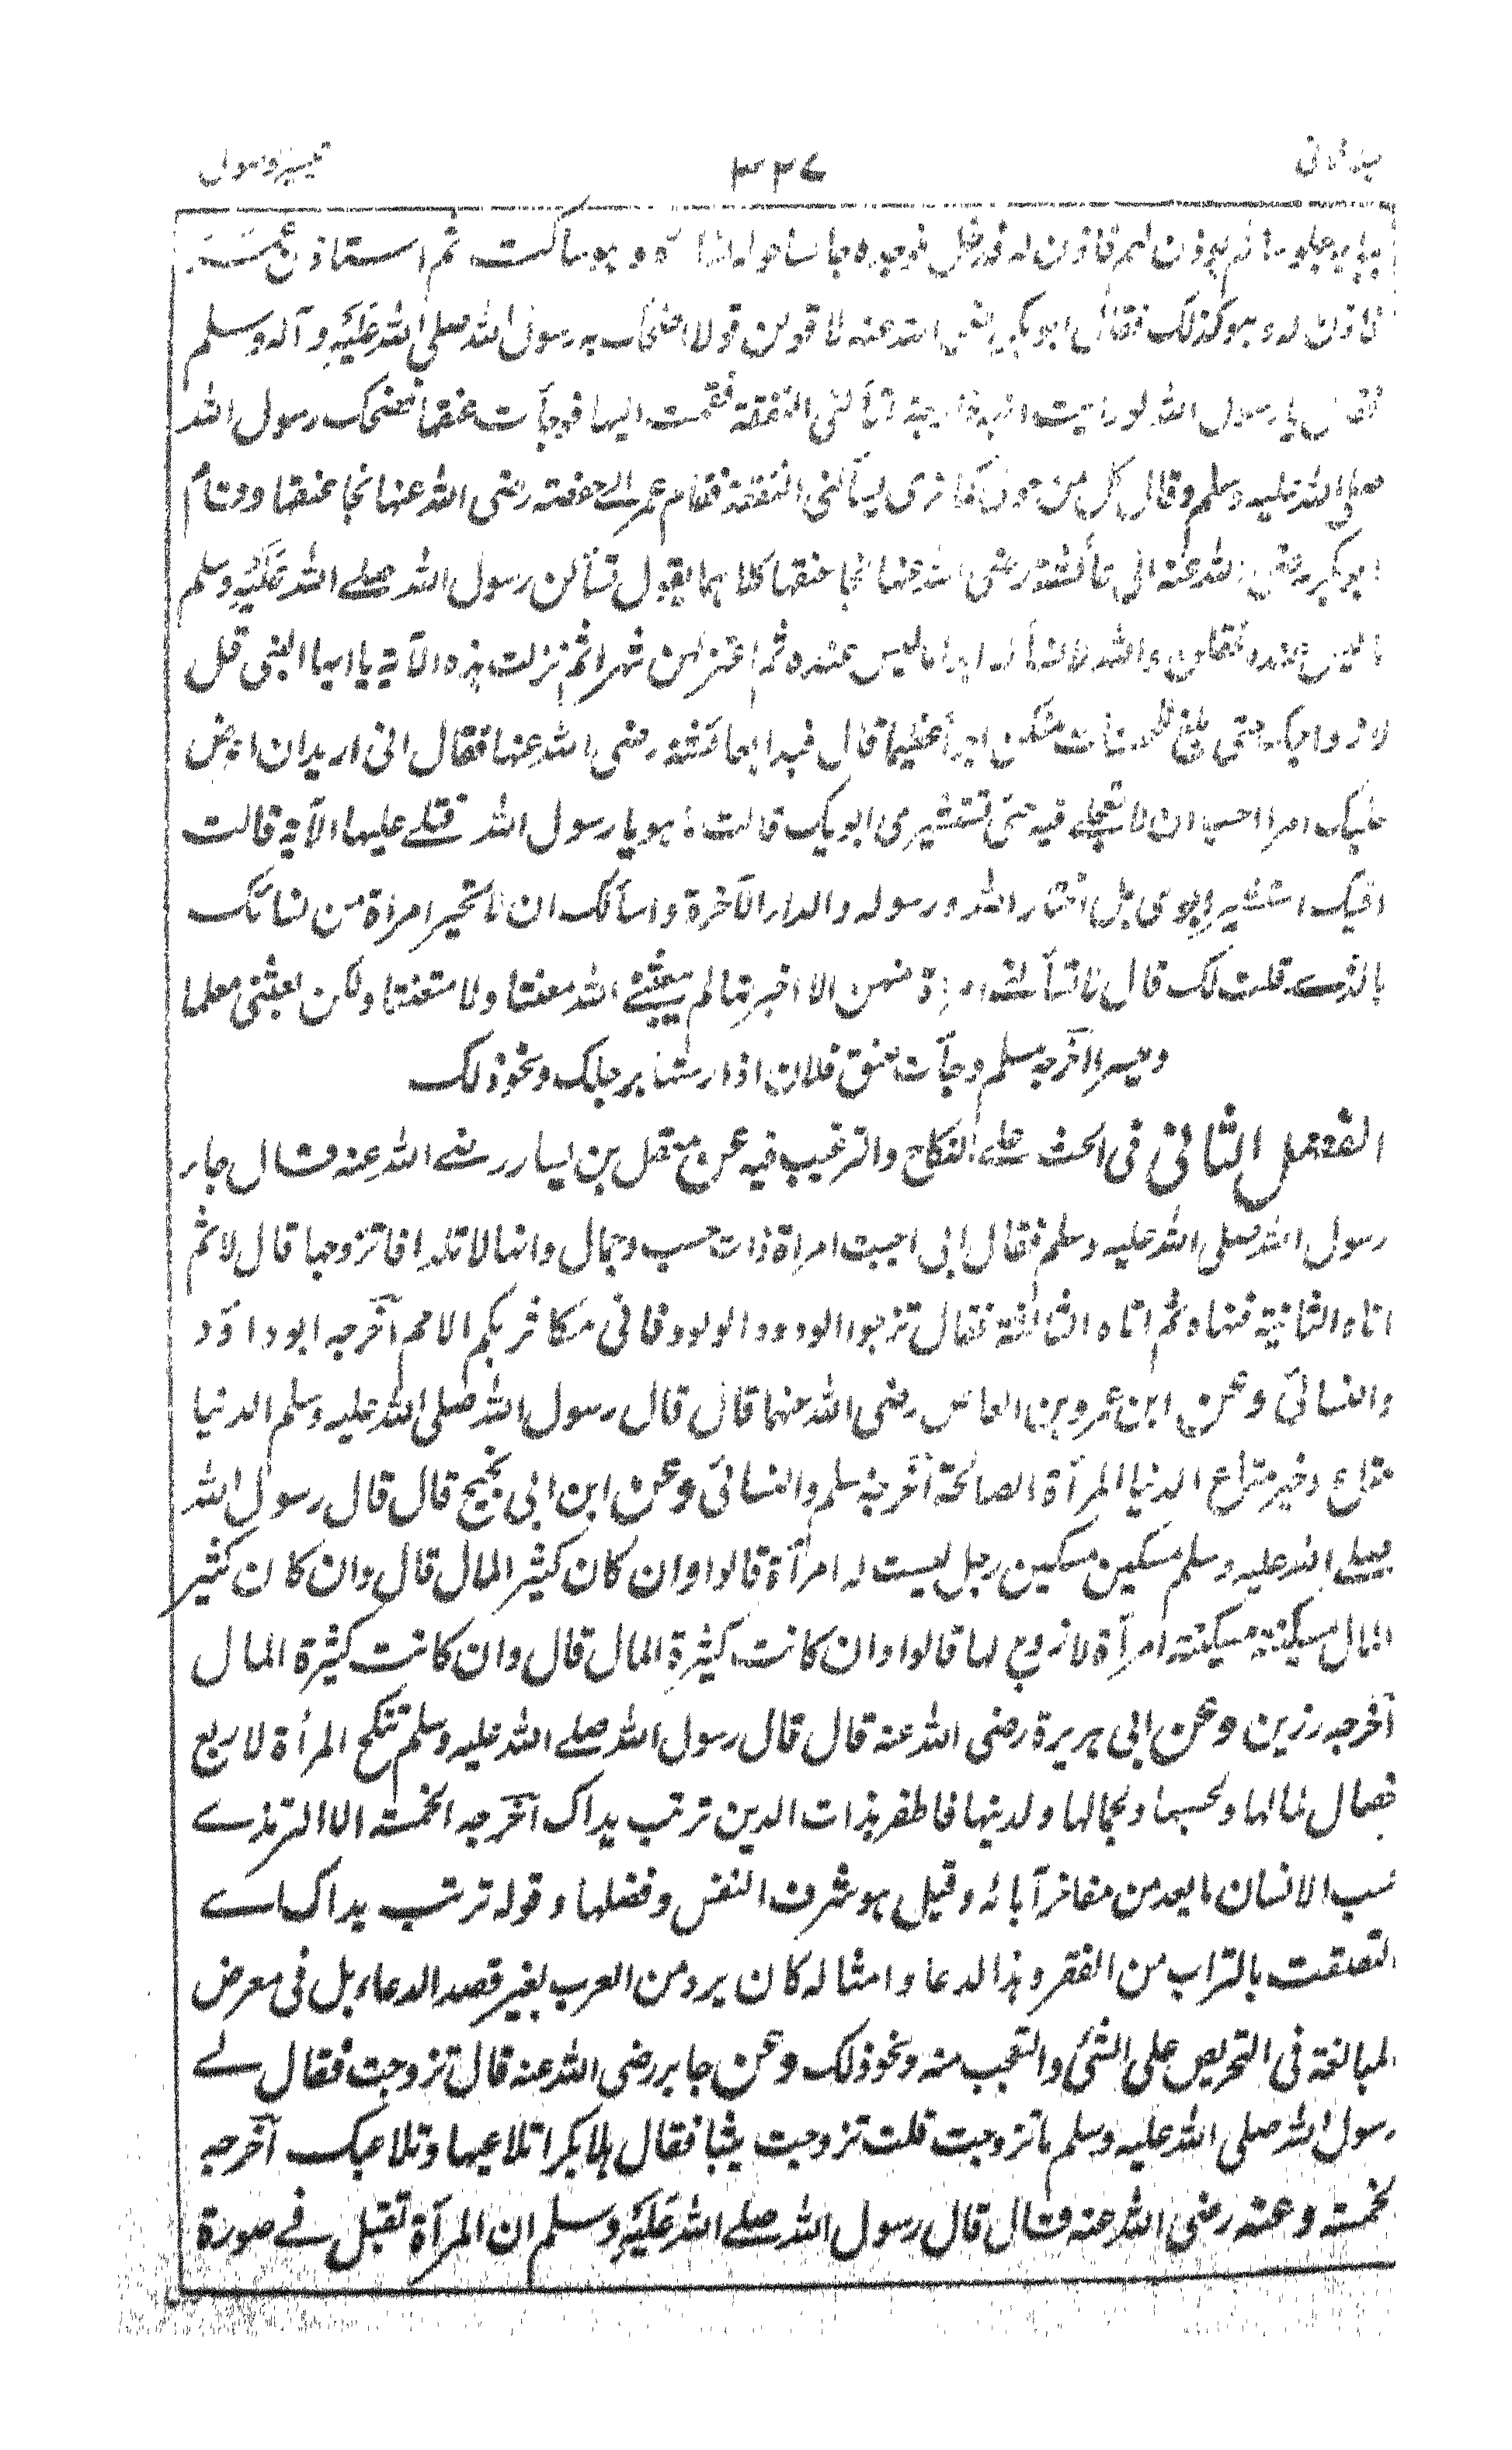 جلد ثانی ۳۳۷ تیسیر الوصول
ببابه جلوسا لم يوذن لهم فاذن له فدخل فوجده جالسا حوله نساؤه وهو ساكت ثم استاذن عمر
فاذن له وهو كذلك فقال ابو بكر رضي الله عنه لا قولن قولا اضحك به رسول الله صلى الله عليه وآله وسلم
فقال يا رسول الله لو رايت ابنة خارجة تسألني النفقة فقمت اليها فوجأت عنقها فضحك رسول الله
صلى الله عليه وسلم وقال كل من حولى كما ترى يسألنى النفقة فقام عمر الى حفصة رضى الله عنها فجا عنقها وقام
ابو بكر رضى الله عنه الى عائشة رضى الله عنها فجا عنقها كلاهما يقول تسألن رسول الله صلى الله عليه وسلم
ما ليس عنده فقلن والله لا نسأله ابدا ما ليس عنده ثم اعتزلهن شهرا ثم نزلت هذه الآية يا ايها النبى قل
لازواجك حتى بلغ للمحسنات منكن اجرا عظيما قال فبدا بعائشة رضى الله عنها فقال انى اريد ان اعرض
عليك امرا احب ان لا تعجلى فيه حتى تستشيرى ابويك قالت ما هو يا رسول الله فتلى عليها الآية قالت
افيك استشير ابوى بل اختار الله ورسوله والدار الآخرة واسألك ان لا تخبر امراة من نسائك
بالذى قلت لك قال لا تسألنى امراة منهن الا اخبرتها لم يبعثنى الله معنتا ولا متعنتا ولكن بعثنى معلما
وميسرا اخرجه مسلم وجأت عنق فلان اذا رستها برجلك ونحو ذلك
الفصل الثانى فى الحث على النكاح والترغيب فيه عن معقل بن يسار رضى الله عنه قال جاء ر
رسول الله صلى الله عليه وسلم فقال انى احببت امراة ذات حسب وجمال وانها لا تلد افا تزوجها قال لا ثم
اتاه الثانية فنهاه ثم اتاه الثالثة فقال تزجوا الودود الولود فانى مكاثر بكم الامم آخرجه ابو داؤد
والنسائى وعن ابن عمرو بن العاص رضى الله عنهما قال قال رسول الله صلى الله عليه وسلم الدنيا
متاع وخير متاع الدنيا المرآة الصالحة آخرجه مسلم والنسائى وعن ابن ابى نجيح قال قال رسول الله
صلى الله عليه وسلم مسكين مسكين رجل ليست له امرآة قالوا وان كان كثير المال قال وان كان كثير
المال مسكينة مسكينة امرآة لا زوج لها قالوا وان كانت كثيرة المال قال وان كانت كثيرة المال
آخرجه رزين وعن ابى هريرة رضى الله عنه قال قال رسول الله صلى الله عليه وسلم تنكح المرأة لاربع
خصال لمالها ولحسبها ولجمالها ولدينها فاظفر بذات الدين تربت يداك آخرجه الخمسة الا الترمذى
حسب الانسان ما يعد من مفاخر آبائه وقيل هو شرف النفس وفضلها وقوله تربت يداك اى
التصقت بالتراب من الفقر وهذا الدعا وامثاله كان يرد من العرب بغير قصد الدعاء بل فى معرض
المبالغة فى التحريص على الشئ والتعجب منه ونحو ذلك وعن جابر رضى الله عنه قال تزوجت فقال لى
رسول الله صلى الله عليه وسلم ما تزوجت قلت تزوجت ثيبا فقال هلا بكرا تلاعبها وتلاعبك آخرجه
الخمسة وعنه رضى الله عنه قال قال رسول الله صلى الله عليه وسلم ان المرآة تقبل فى صورة